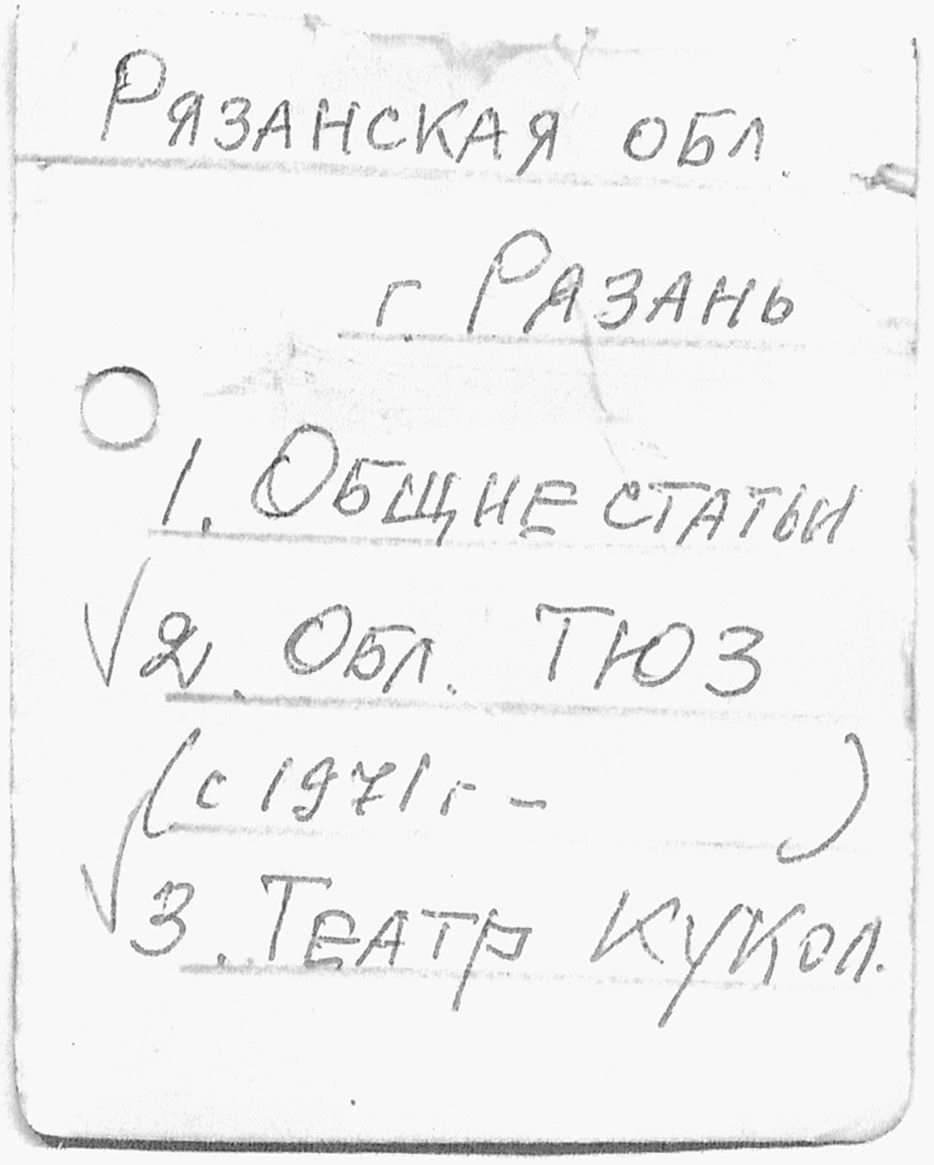 Рязанская обл.
г. Рязань
1. Общие статьи
√2. Обл. ТЮЗ
(с 1971 г – )
√3. Театр кукол.